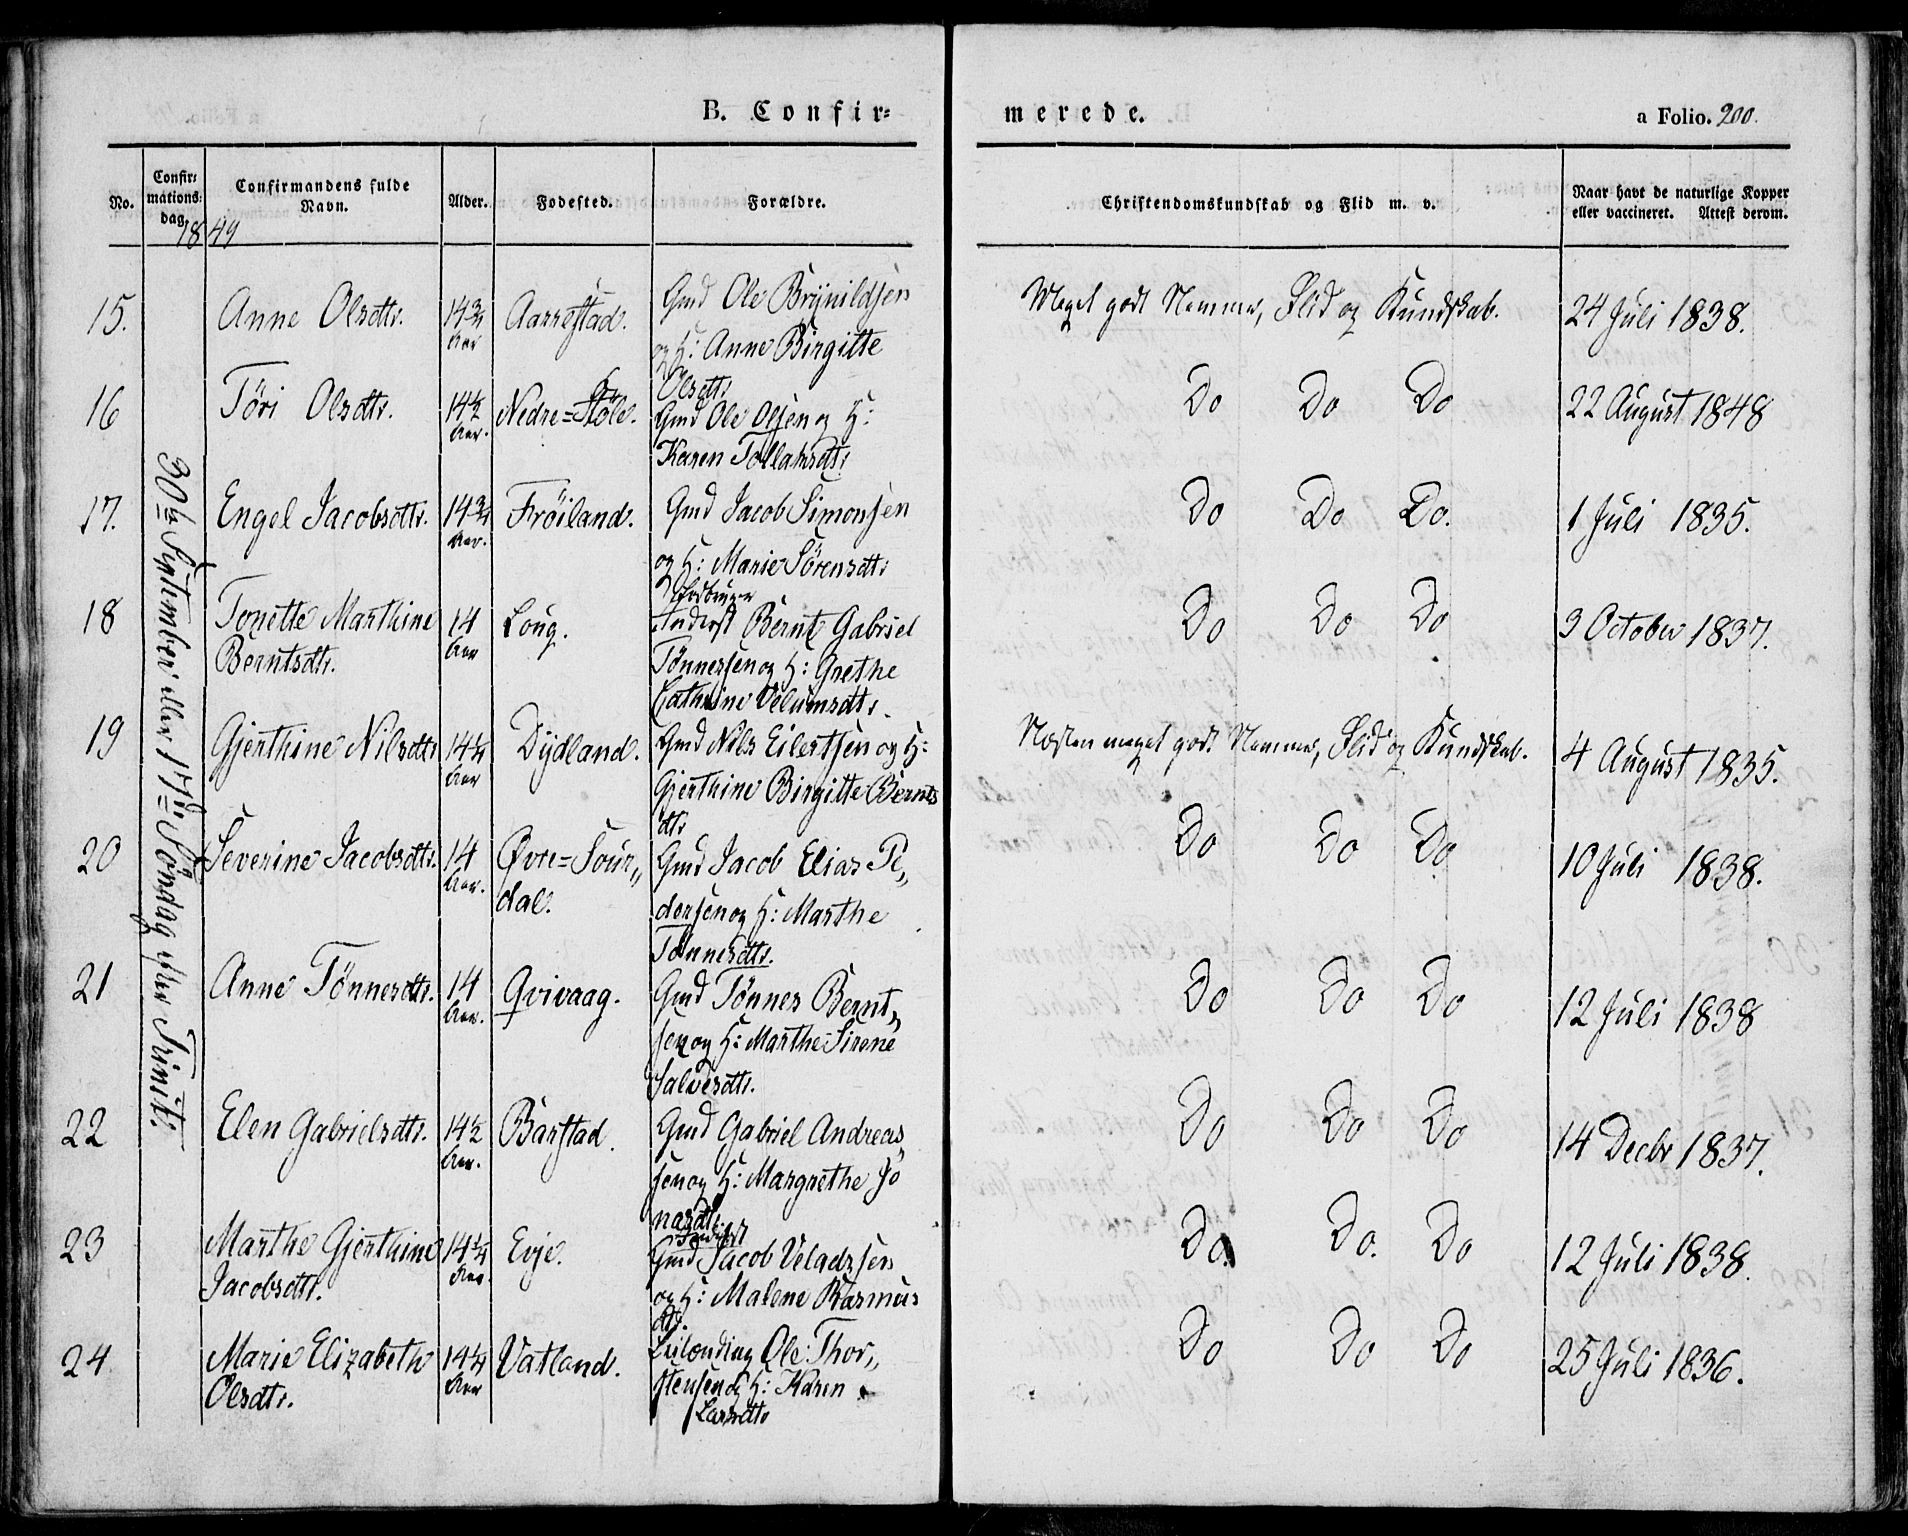 B. Confir=
merede.
a Folio. 200.
No.
Confir=
mations=
dag.
Confirmandens fulde
Navn.
Alder.
Fødested.
Forældre.
Christendomskundskab og Flid m. v.
Naar havt de naturlige Kopper
eller vaccineret. Attest derom.
1849
30te September eller 17de Søndag efter Trinit:
15. Anne Olsdtr. 14¾ Aar Aarrestad. Gmd Ole Brynildsen
og H: Anne Birgitte
Olsdtr.
Meget godt Nemme, Flid og Kundskab. 24 Juli 1838.
16 Töri Olsdtr. 14½ Aar. Nedre=Støle. Gmd Ole Olsen og H:
Karen Tollaksdtr.
Do Do Do 22 August 1848
17. Engel Jacobsdtr. 14¾ Aar. Fröiland. Gmd Jacob Simonsen
og H: Marie Sörensdtr.
Do Do Do. 1 Juli 1835.
18 Tonette Marthine 14 Aar Loug. Bernt Gabriel
Berntsdtr. Tönnessen og H: Grethe
Cathrine Velumsdtr.
Do Do Do 3 October 1837.
19 Gjerthine Nilsdtr. 14¼ Aar Dydland. Gmd Nils Eilertsen og H:
Gjerthine Birgitte Bernts
dtr.
Næsten meget godt Nemme, Flid og Kundskab. 4 August 1835.
20 Severine Jacobsdtr. 14 Aar. Øvre=Sour„ Gmd Jacob Elias Pe„
dal. dersen og H: Marthe
Tönnesdtr.
Do Do Do 10 Juli 1838.
21 Anne Tönnesdtr. 14 Aar. Qvivaag. Gmd Tönnes Bernt„
sen og H: Marthe Sirene
Salvesdtr.
Do Do Do 12 Juli 1838
22 Elen Gabrielsdtr. 14½ Aar. Barstad. Gmd Gabriel Andreas„
sen og H: Margrethe Jo
nasdtr.
Do Do Do 14 Decbr 1837.
23 Marthe Gjerthine 14¼ Aar. Evje. Gmd Jacob Veladssen
Jacobsdtr. og H: Malene Rasmus
dtr.
Do. Do. Do 12 Juli 1838.
24 Marie Elizabeth 14¼ Aar Vatland. Leilænding Ole Thor„
Olsdtr. stensen og H: Karen
Larsdtr
Do Do Do 25 Juli 1836.